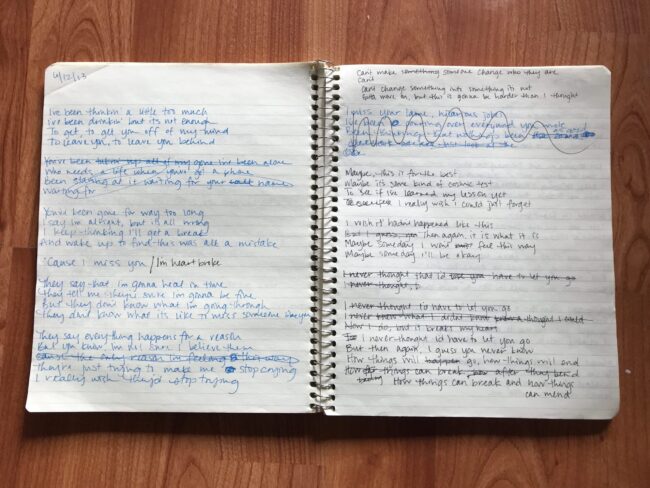 6/12/13
I've been thinkin' a little too much
I've been drinkin' but it's not enough
To get, to get you off of my mind
To leave you, to leave you behind
You've been all of my I've been alone
Who needs a life when you're a phone
Been staring at it waiting for your name
Waiting for
You've been gone for way too long
I say I'm alright, but it's all wrong
I keep thinking I'll get a break
And wake up to find this was all a mistake
'Cause I miss you / I'm heartbroke
They say that I'm gonna heal in time
They tell me they're sure I'm gonna be fine
But they don't know what I'm going through
They don't know what it's like to miss someone like you
They say everything happens for a reason
But you know I'm not sure I believe them
cause the only reason I'm feeling this way
they're just trying to make me stop crying
I really wish they'd stop trying
Can't make something someone change who they are
Can't
Can't change something into something it's not
Gotta move on, but this is gonna be harder than I thought
I miss your lame, hilarious jokes
I've been over everything you wrote
Been but nothing's been
but look at the
Maybe, this is for the best
Maybe it's some kind of cosmic test
To see if I've learned my lesson yet
I really wish I could just forget
I wish it hadn't happened like this
But I guess, Then again, it is what it is
Maybe someday I won't feel this way
Maybe someday, I'll be okay
I never thought that I'd have to let you go
I never thought, I
I never thought I'd have to let you go
I never what I didn't know thought I could
Now I do, but it breaks my heart
I never thought I'd have to let you go
But then again, I guess you never know
How things will go, how things will end
How things can break, after they bend
How things can break and how things
can mend